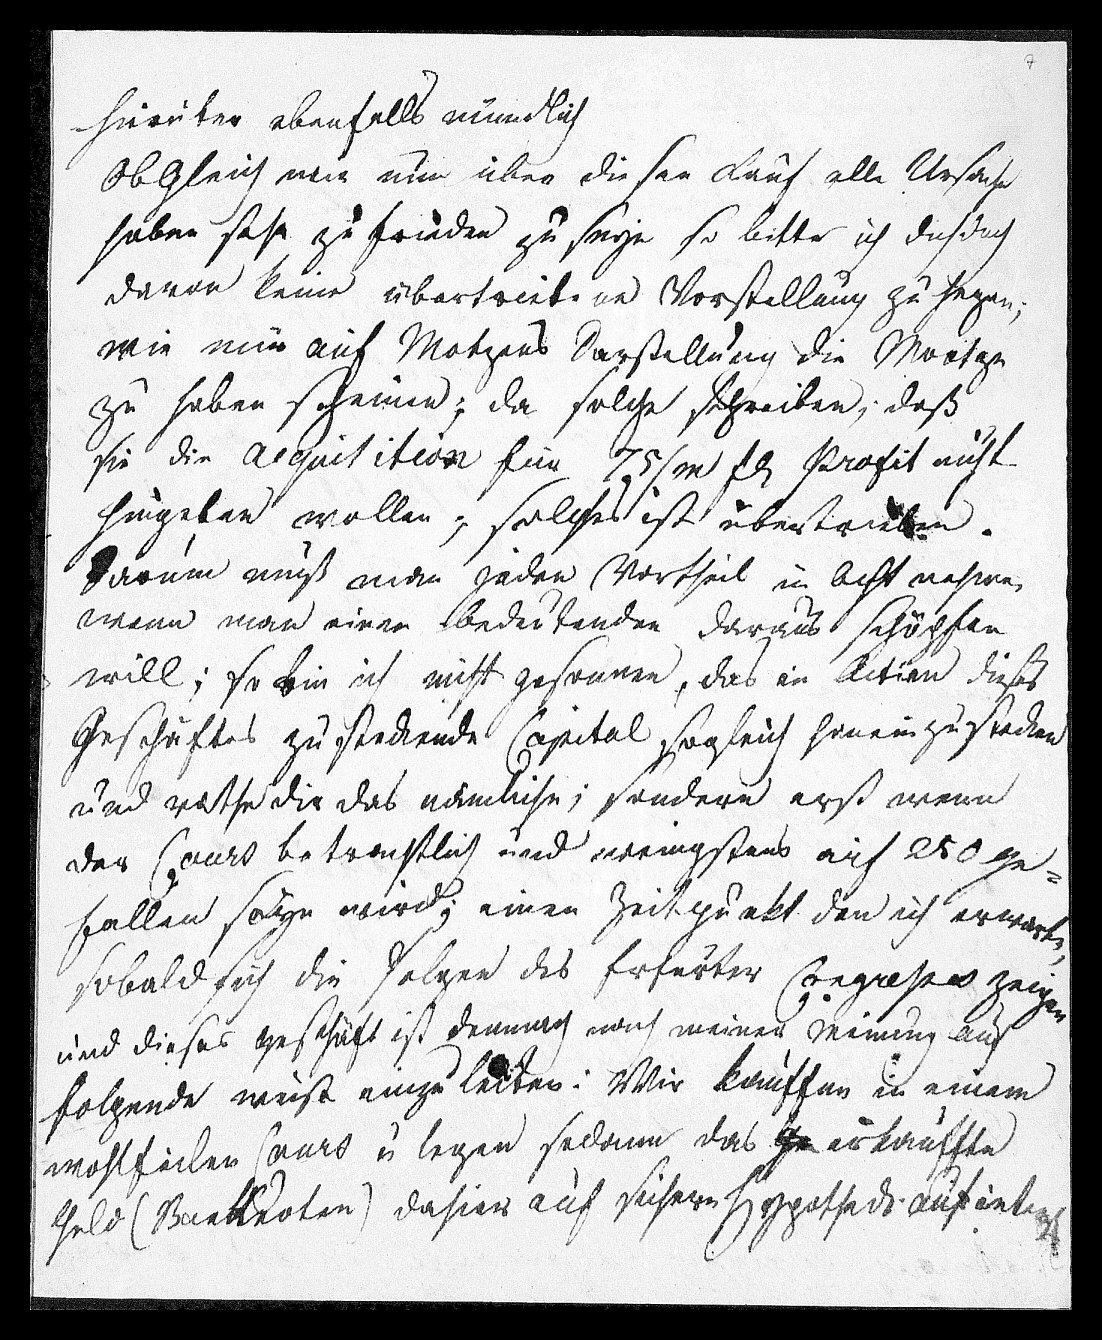 hierüber ebenfalls mündlich
Obgleich wir nun über diesen Kauf alle Ursache
haben sehr zufrieden zu seyn so bitte ich dich doch
davon keine übertriebene Vorstellung zu hegen;
wie nur auf Motzens Darstellung die
zu haben scheinen; da solche schreiben, daß
sie die acquisition für 75/m fl Profit nicht
hingeben wollen; solches ist übertrieben.
Darum muß man jeden Vortheil in Acht nehmen
wenn man einen bedeutenden daraus schöpfen
will; so bin ich nicht gesonnen, das in Actien dieses
Geschäftes zu steckende Capital sogleich hineinzustecken
und rathe dir das nämliche; sondern erst wenn
der Cours beträchtlich und wenigstens auf 250 ge=
fallen seyn wird; einen Zeitpunkt den ich erwarte,
sobald sich die Folgen des Erfurter Congresses zeigen
und dieses Geschäft ist demnach nach meiner Meinung auf
folgende weise einzuleiten: Wir kauffen in einem
wohlfeilen Cours u legen sodann das erkauffte
Geld (Banknoten) dahier auf sichere Hypotheck auf